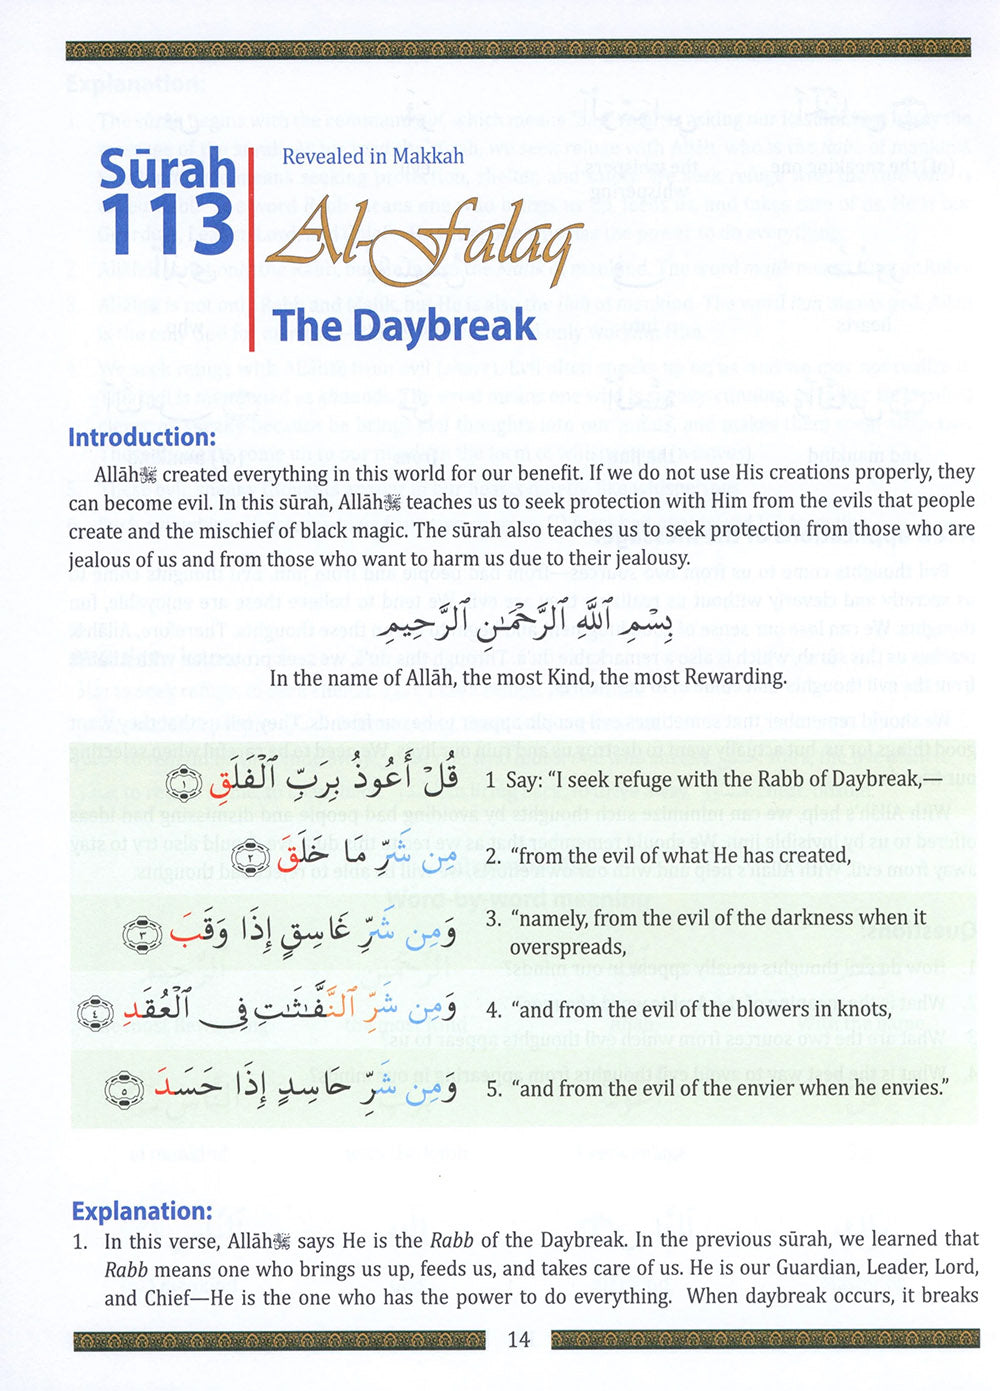 Sūrah
113
Revealed in Makkah
Al-Falaq
The Daybreak
Introduction:
Allāhﷻ created everything in this world for our benefit. If we do not use His creations properly, they
can become evil. In this sūrah, Allāhﷻ teaches us to seek protection with Him from the evils that people
create and the mischief of black magic. The sūrah also teaches us to seek protection from those who are
jealous of us and from those who want to harm us due to their jealousy.
بِسْمِ ٱللَّهِ ٱلرَّحْمَٰنِ ٱلرَّحِيمِ
In the name of Allāh, the most Kind, the most Rewarding.
قُلْ أَعُوذُ بِرَبِّ ٱلْفَلَقِ ١
1 Say: “I seek refuge with the Rabb of Daybreak,—
مِن شَرِّ مَا خَلَقَ ٢
2. “from the evil of what He has created,
وَمِن شَرِّ غَاسِقٍ إِذَا وَقَبَ ٣
3. “namely, from the evil of the darkness when it
overspreads,
وَمِن شَرِّ ٱلنَّفَّٰثَٰتِ فِى ٱلْعُقَدِ ٤
4. “and from the evil of the blowers in knots,
وَمِن شَرِّ حَاسِدٍ إِذَا حَسَدَ ٥
5. “and from the evil of the envier when he envies.”
Explanation:
1. In this verse, Allāhﷻ says He is the Rabb of the Daybreak. In the previous sūrah, we learned that
Rabb means one who brings us up, feeds us, and takes care of us. He is our Guardian, Leader, Lord,
and Chief—He is the one who has the power to do everything. When daybreak occurs, it breaks
14